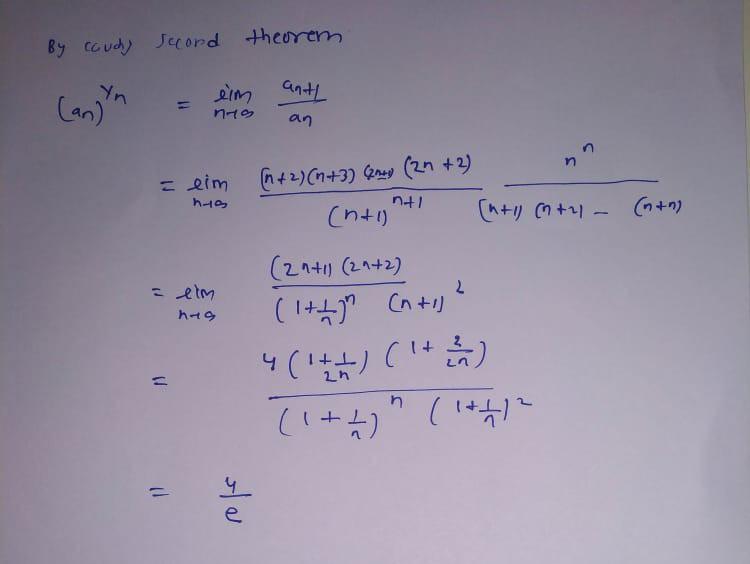 By Cauchy Second theorem
(an)^1/n = lim n→∞ an+1 / an
= lim n→∞ (n+2)(n+3) (2n+1) (2n+2) / (n+1)^n+1 n^n / (n+1) (n+2) - (n+n)
= lim n→∞ (2n+1) (2n+2) / (1+1/n)^n (n+1)^2
= 4 (1+1/2n) (1+2/2n) / (1+1/n)^n (1+1/n)^2
= 4/e